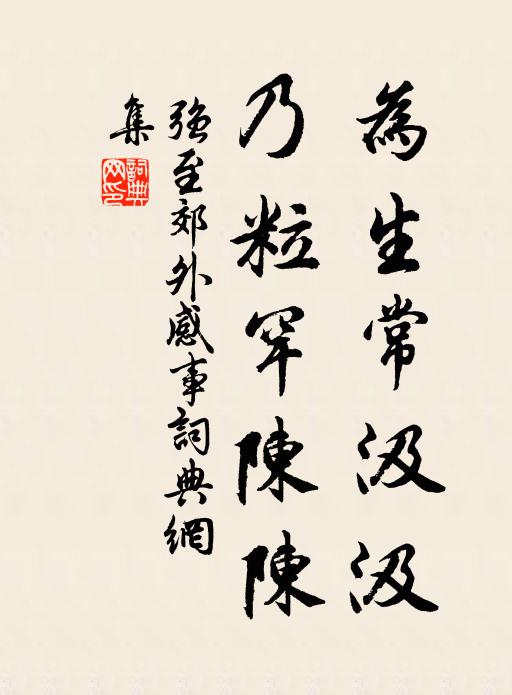 為生常汲汲
乃粒罕陳陳
強至郊外感事詞典網
集
詞典網印